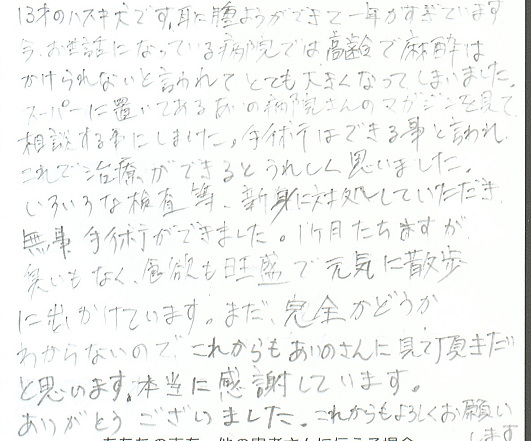 13才のハスキ犬です。耳に腫ようができて一年がすぎています
今、お世話になっている病院では高齢で麻酔は
かけられないと言われてとても大きくなってしまいました。
スーパーに置いてあるあいの病院さんのマガジンを見て、
相談する事にしました。手術はできる事と言われ、
これで治療ができるとうれしく思いました。
いろいろな検査等、新身に対処していただき、
無事、手術ができました。1ヶ月たちますが
臭いもなく、食欲も旺盛で元気に散歩
に出かけています。まだ、完全かどうか
わからないので、これからもあいのさんに見て頂きたい
と思います。本当に感謝しています。
ありがとうございました。これからもよろしくお願い
します